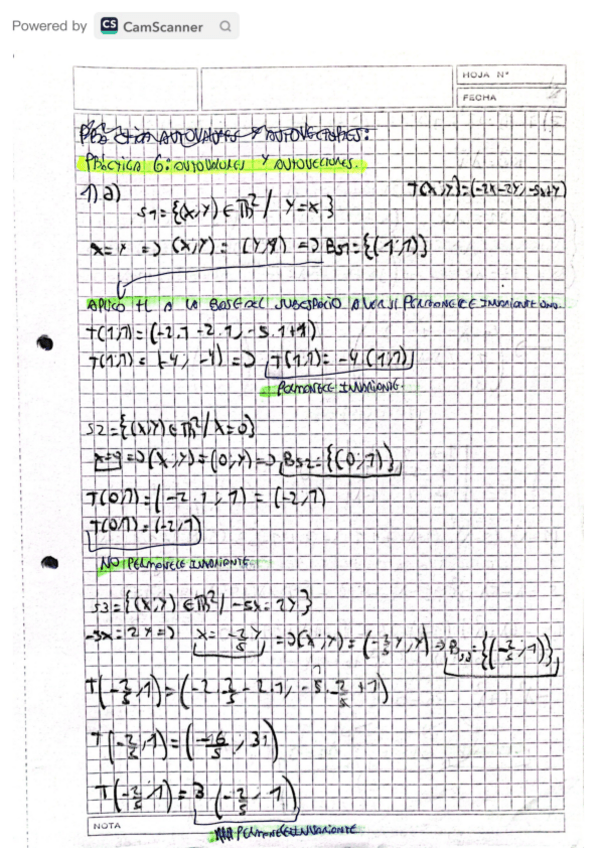 Powered by CS CamScanner
HOJA N°
FECHA
PRÁCTICA AUTOVALORES Y AUTOVECTORES:
PRÁCTICA 6: AUTOVALORES Y AUTOVECTORES.
1) a)
T(x;y)=(-2x-2y; -5x+y)
S1={(x;y) ∈ ℝ² / y=x}
x=y => (x;y) = (y;y) => Bs1={(1;1)}
APLICO TL A LA BASE DEL SUBESPACIO A VER SI PERMANECE INVARIANTE O NO.
T(1;1)=(-2.1-2.1; -5.1+1)
T(1;1)=(-4; -4) => T(1;1)=-4(1;1)
PERMANECE INVARIANTE.
S2={(x;y) ∈ ℝ² / x=0}
x=0 => (x;y)=(0;y) => Bs2={(0;1)}
T(0;1)=(-2.1; 1) = (-2;1)
T(0;1)=(-2;1)
NO PERMANECE INVARIANTE.
S3={(x;y) ∈ ℝ² / -5x=2y}
-5x=2y => x=-2/5y => (x;y)=(-2/5y; y) => Bs3={(-2/5; 1)}
T(-2/5; 1)=(-2.-2/5-2.1; -5.-2/5+1)
T(-2/5; 1)=(-6/5; 3)
T(-2/5; 1)=3(-2/5; 1)
NOTA
PERMANECE INVARIANTE